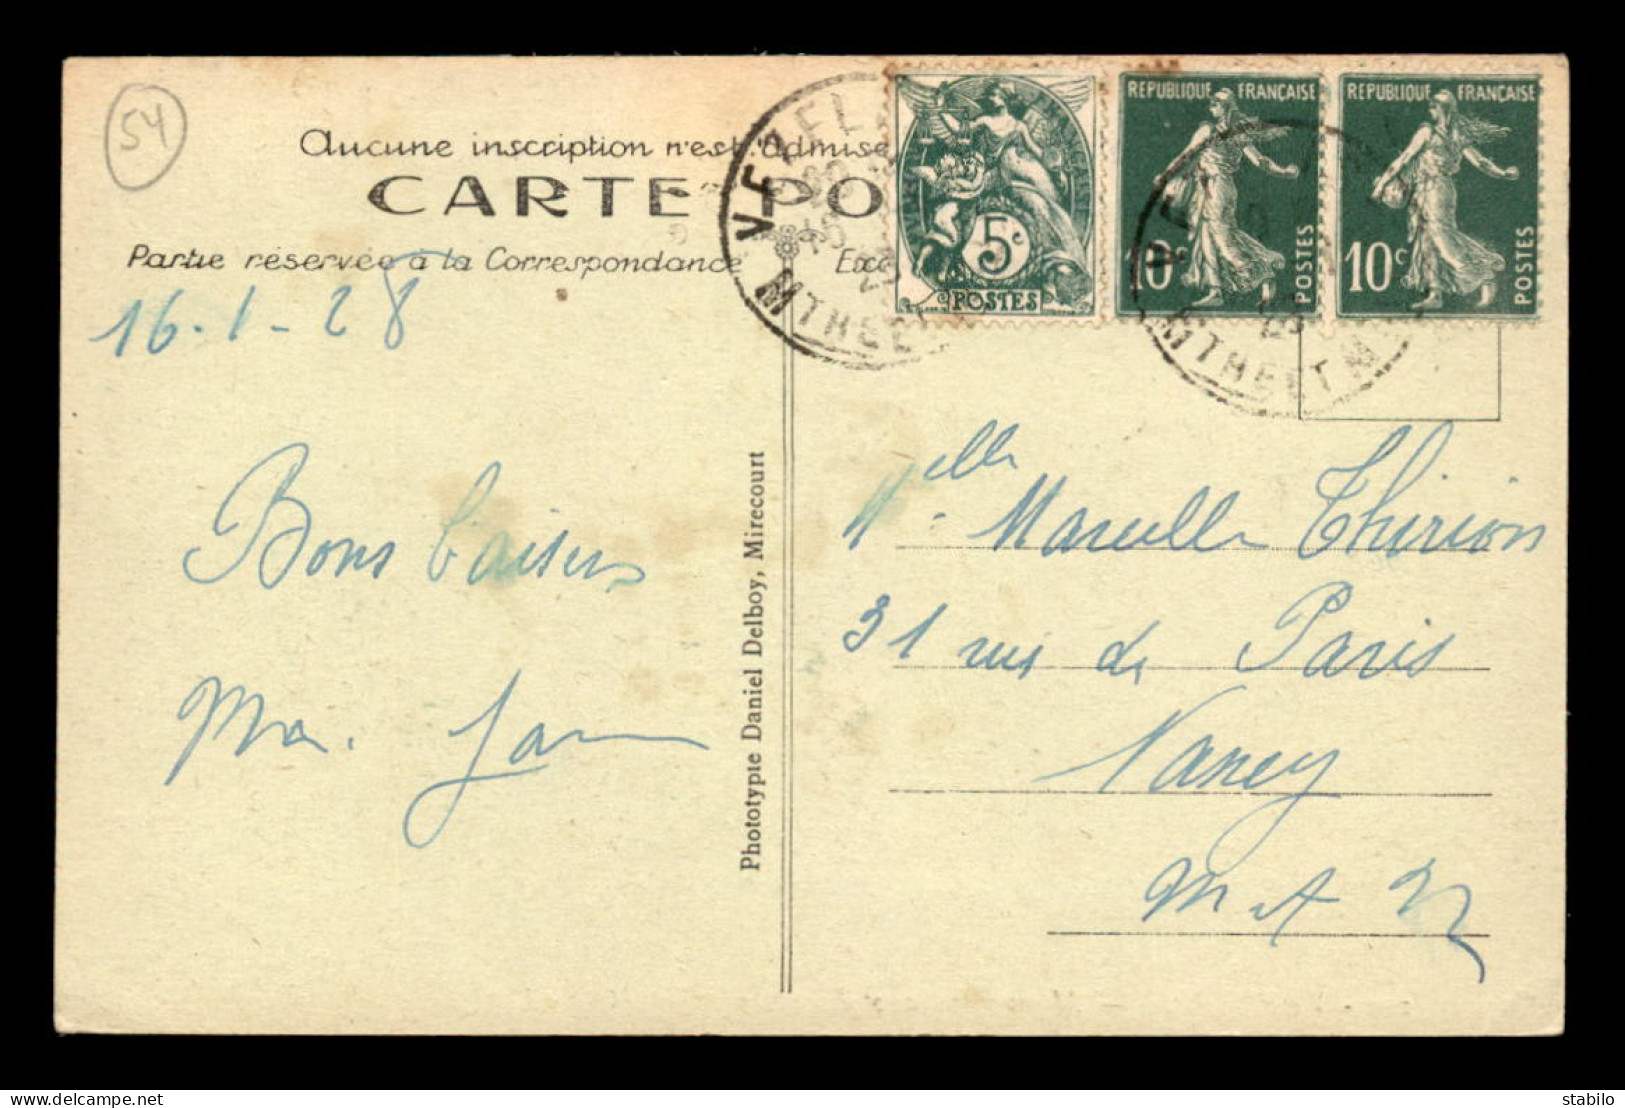 54
Aucune inscription n'est admise
CARTE PO
Partie réservée à la Correspondance
16-1-28
Bons baisers
Phototypie Daniel Delboy, Mirecourt
VEZEL
MTHE ET M
5c
POSTES
REPUBLIQUE FRANÇAISE
10c
POSTES
REPUBLIQUE FRANÇAISE
10c
POSTES
MTHE ET M
Melle Marcelle Thirion
31 rue de Paris
Nancy
M et M
stabilo